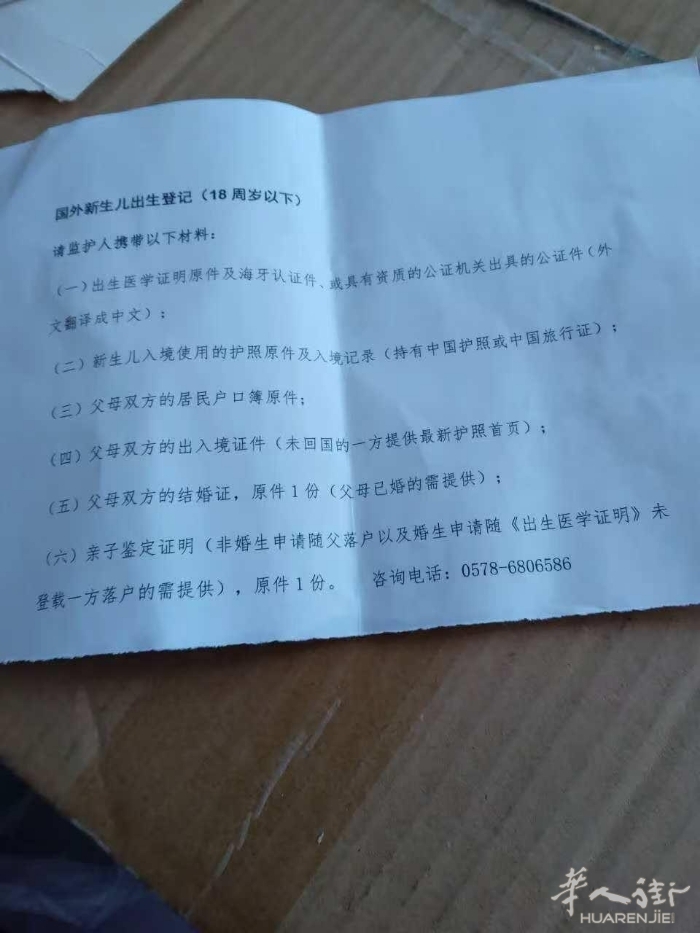 国外新生儿出生登记（18周岁以下）
请监护人携带以下材料：
（一）出生医学证明原件及海牙认证件、或具有资质的公证机关出具的公证件（外
文翻译成中文）；
（二）新生儿入境使用的护照原件及入境记录（持有中国护照或中国旅行证）；
（三）父母双方的居民户口簿原件；
（四）父母双方的出入境证件（未回国的一方提供最新护照首页）；
（五）父母双方的结婚证，原件1份（父母已婚的需提供）；
（六）亲子鉴定证明（非婚生申请随父落户以及婚生申请随《出生医学证明》未
登载一方落户的需提供），原件1份。 咨询电话：0578-6806586
华人街
HUARENJIE